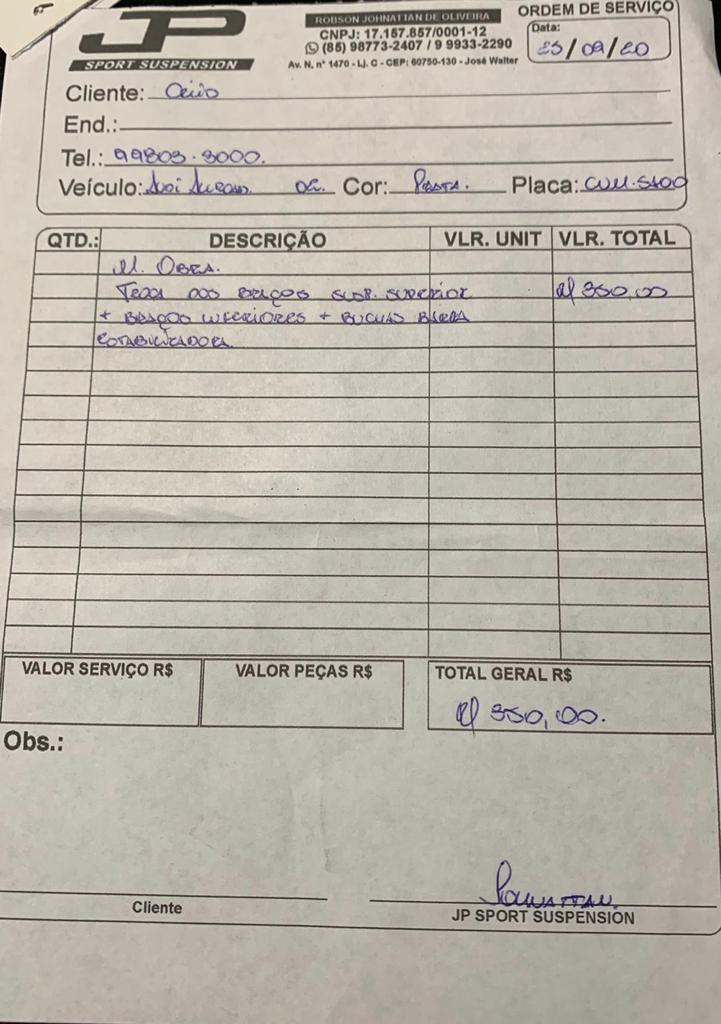 JP
SPORT SUSPENSION
ROBSON JOHNATTAN DE OLIVEIRA
CNPJ: 17.157.857/0001-12
(85) 98773-2407 / 9 9933-2290
Av. N, nº 1470 - Lj. C - CEP: 60750-130 - José Walter
ORDEM DE SERVIÇO
Data:
25/09/20
Cliente:
End.:
Tel.: 99803.3000.
Veículo: Cor: Placa:
QTD.: DESCRIÇÃO VLR. UNIT VLR. TOTAL
M. Obra.
Troca dos braços susp. superior R$ 350,00
+ braços inferiores + buchas barra
estabilizadora.
VALOR SERVIÇO R$ VALOR PEÇAS R$ TOTAL GERAL R$
R$ 350,00.
Obs.:
Cliente
JP SPORT SUSPENSION